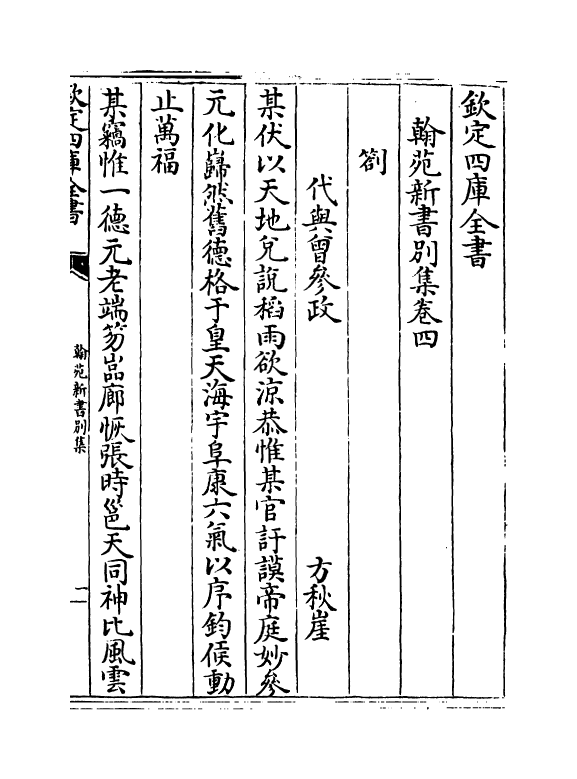 欽定四庫全書
翰苑新書別集卷四
劄
代與曾參政　方秋崖
某伏以天地兌說稻雨欲涼恭惟某官訏謨帝庭妙參
元化巋然舊德格于皇天海宇阜康六氣以序鈞候動
止萬福
某竊惟一德元老端笏嵓廊恢張時邕天同神比風雲
欽定四庫全書
翰苑新書別集
二